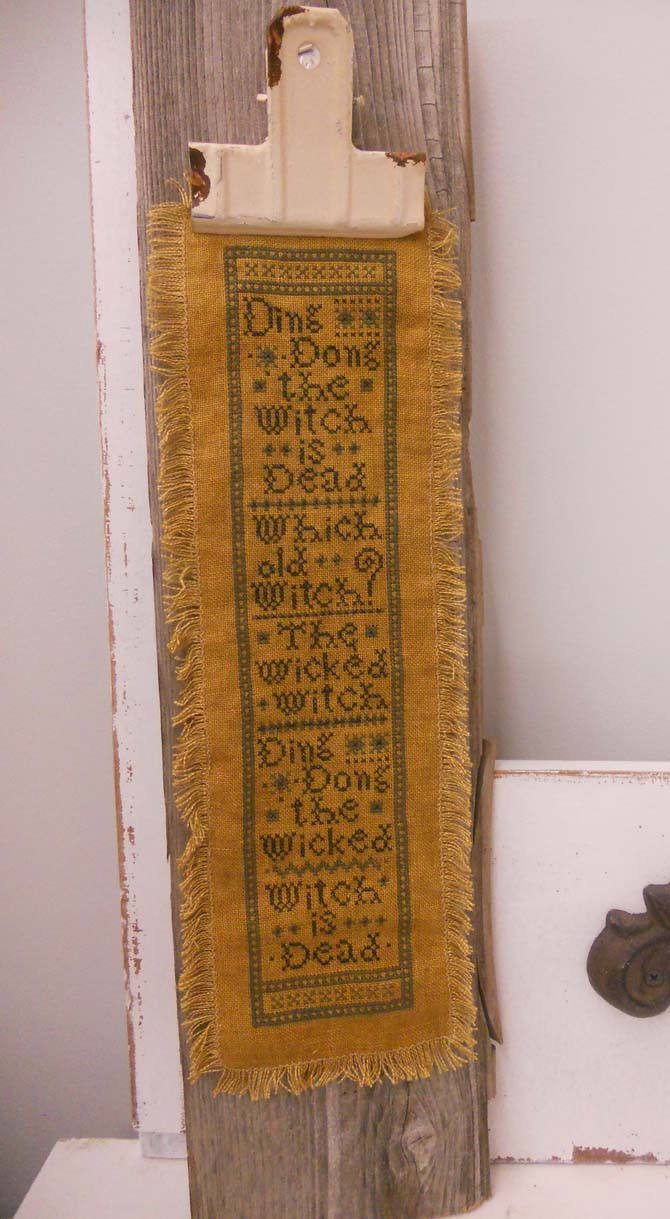 Ding
Dong
the
Witch
is
Dead
Which
old
Witch?
The
wicked
witch
Ding
Dong
the
Wicked
Witch
is
Dead